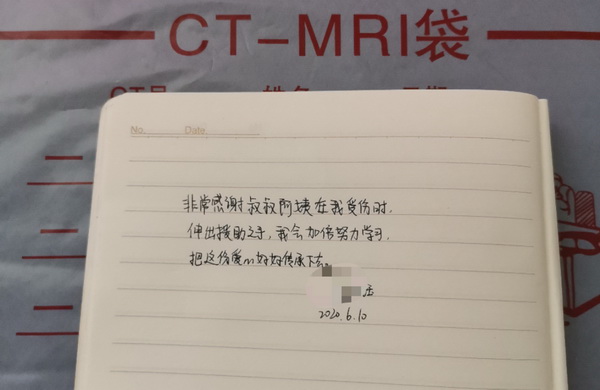 CT-MRI袋
CT号 姓名 日期
No. Date
一
二
二
非常感谢叔叔阿姨在我受伤时,
伸出援助之手,我会加倍努力学习,
把这份爱心好好传承下去。
2020.6.10